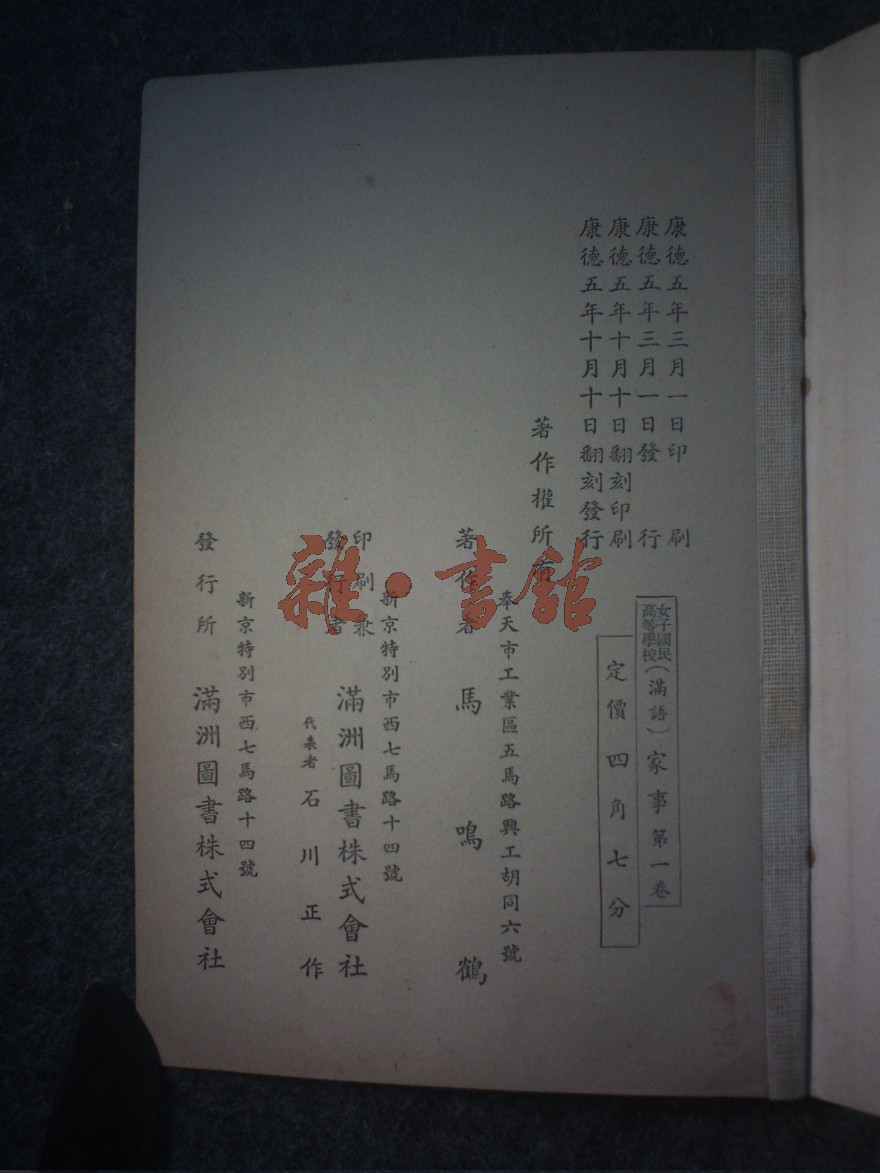 康德五年三月一日印刷
康德五年三月一日發行
康德五年十月十日翻刻印刷
康德五年十月十日翻刻發行
女子國民
高等學校
(滿語)家事第一卷
定價四角七分
著作權所有
奉天市工業區五馬路興工胡同六號
著作者 馬鳴鶴
新京特別市西七馬路十四號
印刷兼
發行者
滿洲圖書株式會社
代表者 石川正作
新京特別市西七馬路十四號
發行所 滿洲圖書株式會社
雜·書館